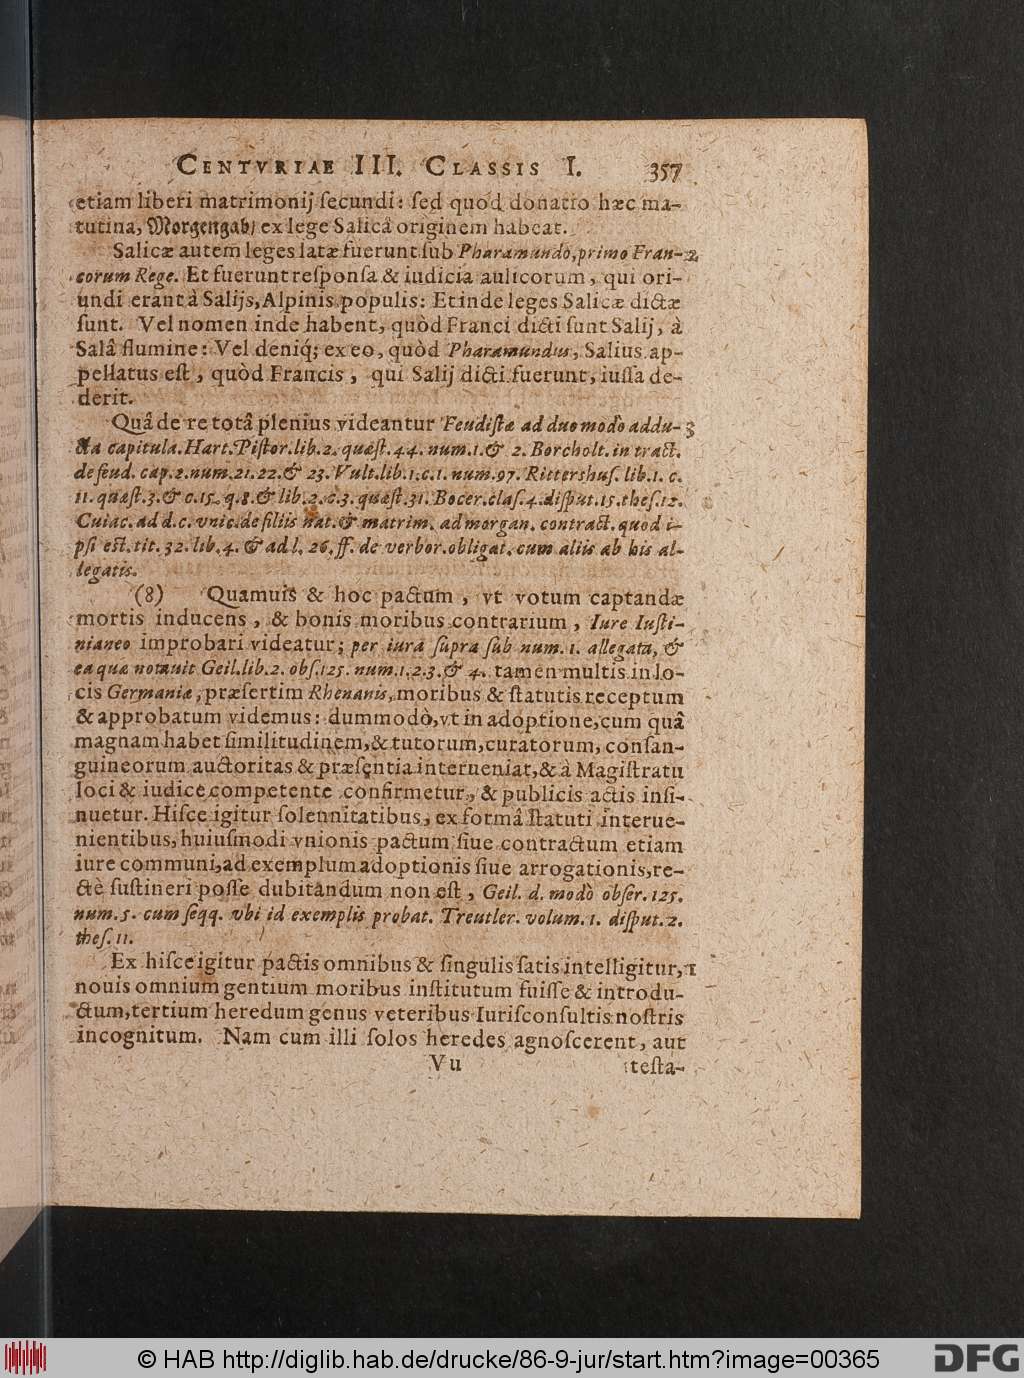 CENTVRIAE III. CLASSIS I. 357
etiam liberi matrimonij ſecundi: ſed quod donatio hæc ma-
tutina, Morgengab/ ex lege Salicâ originem habeat.
Salicæ autem leges latæ fuerunt ſub Pharamundo, primo Fran- 2
corum Rege. Et fuerunt reſponſa & iudicia aulicorum, qui ori-
undi erant à Salijs, Alpinis populis: Et inde leges Salicæ dictæ
ſunt. Vel nomen inde habent, quòd Franci dicti ſunt Salij, à
Salâ flumine: Vel deniq́; ex eo, quòd Pharamundus, Salius ap-
pellatus eſt, quòd Francis, qui Salij dicti fuerunt, iuſſa de-
derit.
Quâ de re totâ plenius videantur Feudiſtæ ad duo modò addu- 3
cta capitula. Hart. Piſtor. lib. 2. quæſt. 44. num. 1. & 2. Borcholt. in tract.
de feud. cap. 2. num. 21. 22. & 23. Vult. lib. 1. c. 1. num. 97. Rittershuſ. lib. 1. c.
11. quæſt. 3. & c. 15. q. 8. & lib. 2. c. 3. quæſt. 31. Bocer. claſ. 4. diſput. 15. theſ. 12.
Cuiac. ad d. c. vnic. de filiis nat. & matrim. ad morgan. contract. quod i-
pſi eſt. tit. 32. lib. 4. & ad l. 26. ff. de verbor. obligat. cum aliis ab his al-
legatis.
(8) Quamuis & hoc pactum, vt votum captandæ
mortis inducens, & bonis moribus contrarium, Iure Iuſti-
nianeo improbari videatur; per iura ſupra ſub num. 1. allegata, &
ea quæ notauit Geil. lib. 2. obſ. 125. num. 1. 2. 3. & 4. tamen multis in lo-
cis Germaniæ, præſertim Rhenanis, moribus & ſtatutis receptum
& approbatum videmus: dummodò, vt in adoptione, cum quâ
magnam habet ſimilitudinem, & tutorum, curatorum, conſan-
guineorum auctoritas & præſentia interueniat, & à Magiſtratu
loci & iudice competente confirmetur, & publicis actis inſi-
nuetur. Hiſce igitur ſolennitatibus, ex formâ ſtatuti interue-
nientibus, huiuſmodi vnionis pactum ſiue contractum etiam
iure communi, ad exemplum adoptionis ſiue arrogationis, re-
ctè ſuſtineri poſſe dubitandum non eſt, Geil. d. modò obſer. 125.
num. 5. cum ſeqq. vbi id exemplis probat. Treutler. volum. 1. diſput. 2.
theſ. 11.
Ex hiſce igitur pactis omnibus & ſingulis ſatis intelligitur, 1
nouis omnium gentium moribus inſtitutum fuiſſe & introdu-
ctum, tertium heredum genus veteribus Iuriſconſultis noſtris
incognitum. Nam cum illi ſolos heredes agnoſcerent, aut
Vu teſta-
© HAB http://diglib.hab.de/drucke/86-9-jur/start.htm?image=00365 DFG